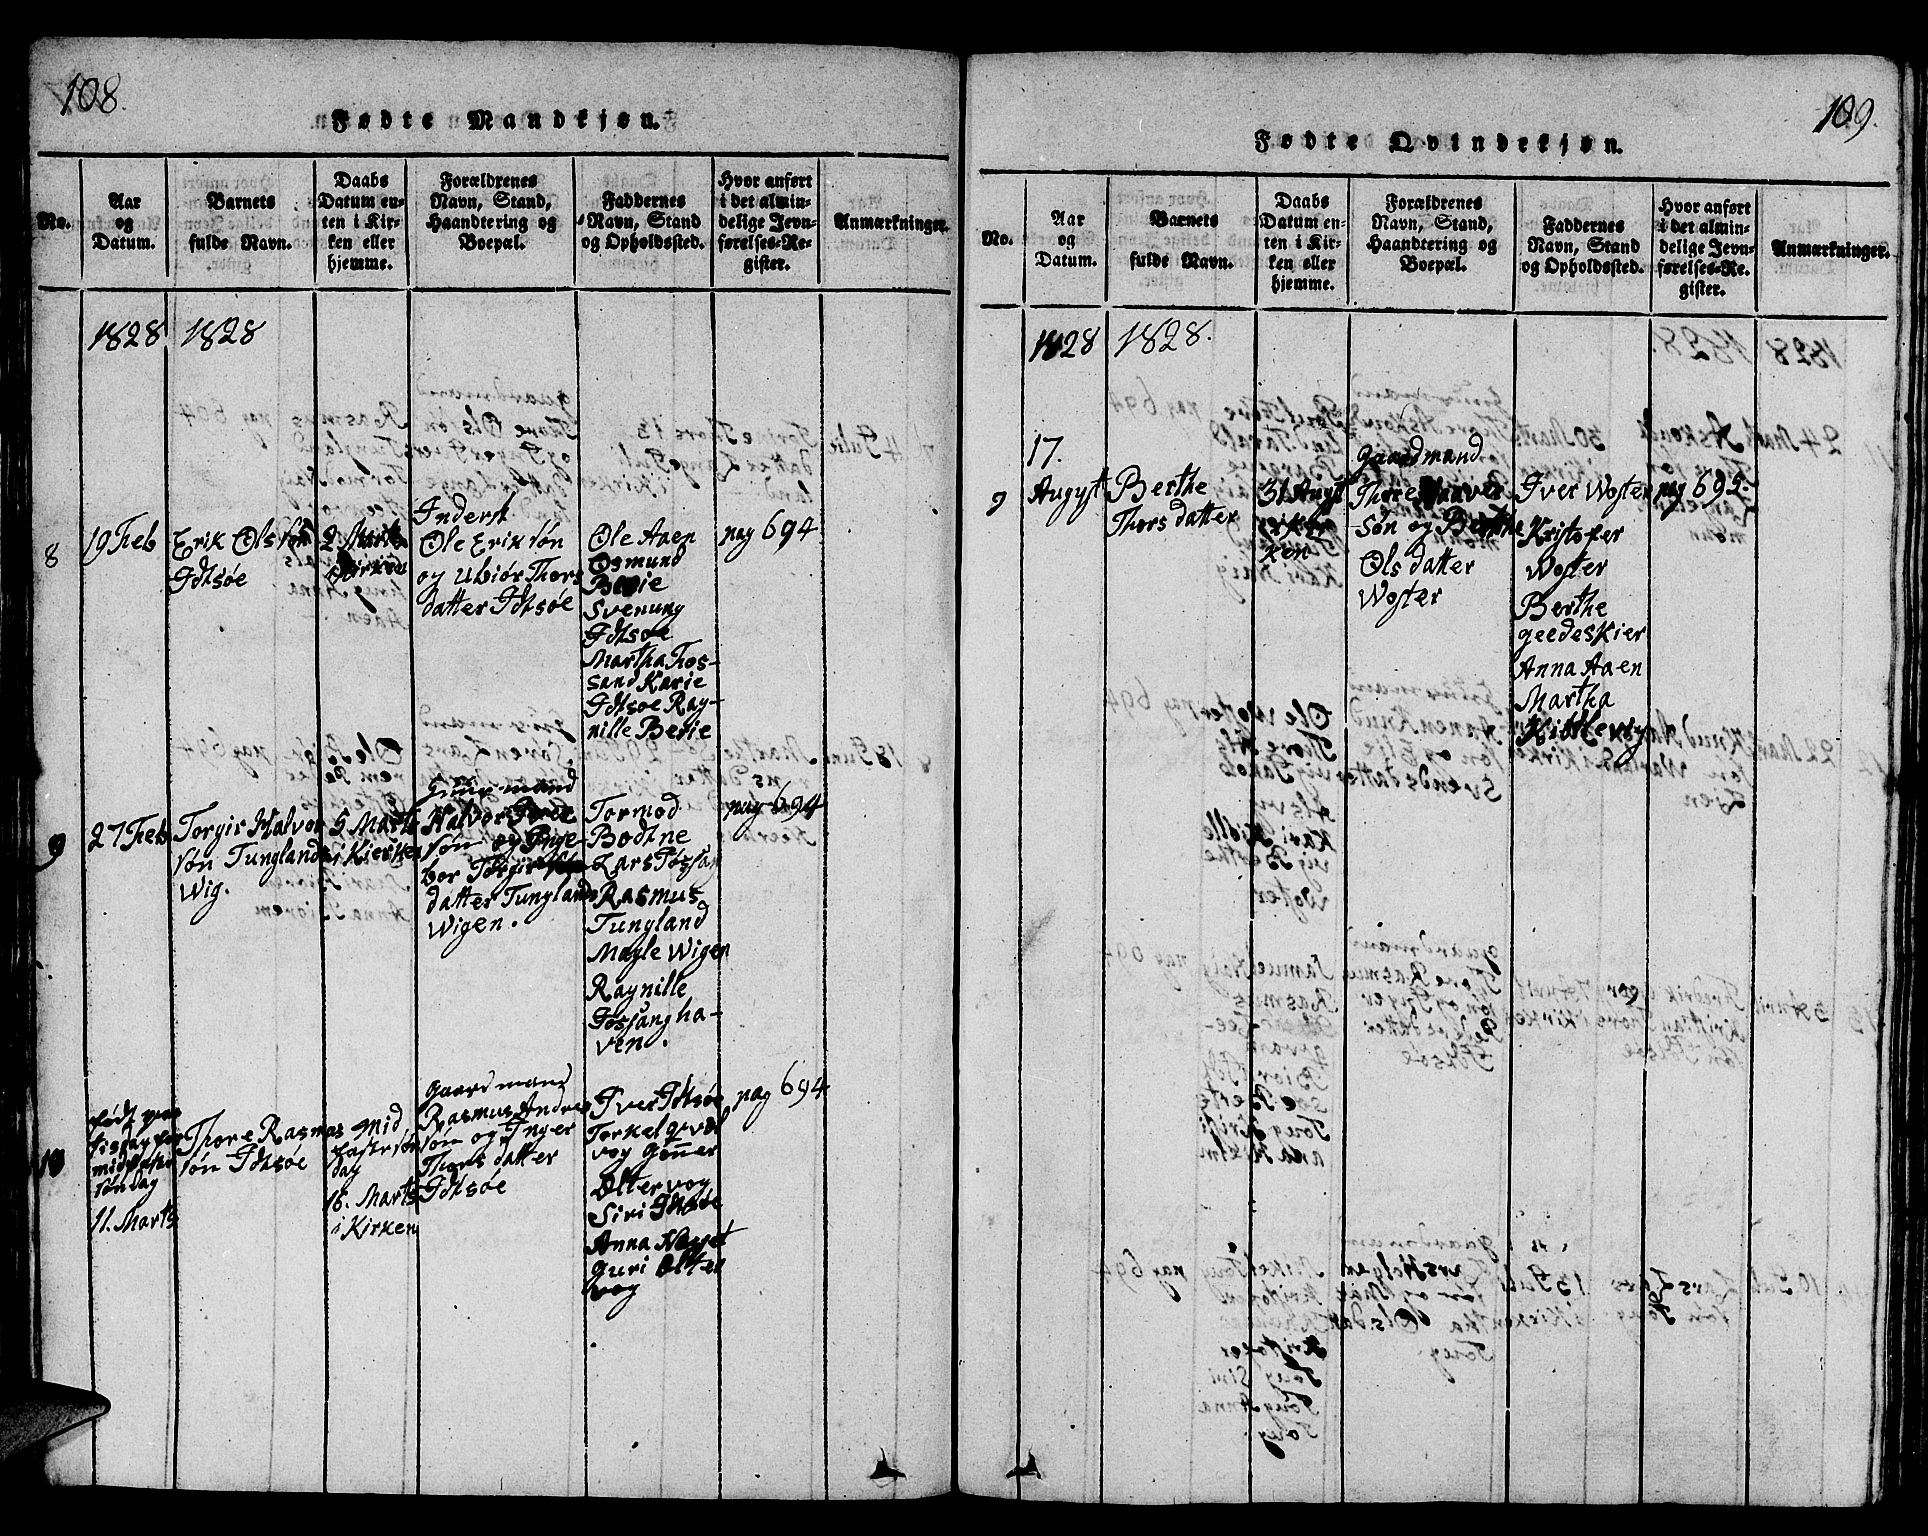 108.
Fødte Mandkjøn.
No.
Aar
og
Datum.
Barnets
fulde Navn.
Daabs
Datum en-
ten i Kir-
ken eller
hjemme.
Forældrenes
Navn, Stand,
Haandtering og
Boepæl.
Faddernes
Navn, Stand
og Opholdssted.
Hvor anført
i det almin-
delige Jevn-
førelses-Re-
gister.
Anmærkninger.
1828
1828
8
19 Feb
Erik Ols søn
Idtsøe
2 Marts
i Kirken
Indersk
Ole Erik søn
og Ubiør Thors
datter Idtsøe
Ole Aaen
Osmund
Berie
Svenung
Idtsøe
Martha Fos-
sand Karie
Idtsøe Rag-
nille Berie
pag 694
9
27 Feb
Torgir Halvor
søn Tunglands
Wig.
5 Marts
i Kierken
mand
Halvor Tore
søn og Inge-
bor Torgir
datter Tungland
Wigen.
Tormod
Bodtne
Lars Fossan
Rasmus
Tungland
Magle Wigen
Ragnille
Fossang ha-
ven.
pag 694
10
født
tisdag før
midfaste
søndag
11. Marts
Thore Rasmus
søn Idtsøe
mid
faste søn
dag
16. Marts
i Kirken
gaard mand
Rasmus Andres
søn og Inger
Thors datter
Idtsøe
Iver Idtsøe
Torkel qvæl
vog Gunner
Oltervog
Siri Idtsøe
Anna Næset
guri Olter
vog
pag 694
109.
Fødte Qvindekjøn.
No.
Aar
og
Datum.
Barnets
fulde Navn.
Daabs
Datum en-
ten i Kir-
ken eller
hjemme.
Forældrenes
Navn, Stand,
Haandtering og
Boepæl.
Faddernes
Navn, Stand
og Opholdssted.
Hvor anført
i det almin-
delige Jevn-
førelses-Re-
gister.
Anmærkninger.
1828
1828.
9
17.
Augyst
Berthe
Thors datter
31 Augst
i Kir
ken
gaardmand
Thore Haaver
søn og Berthe
Ols datter
Woster
Iver Woster
Kristofer
Woster
Berthe
geedeskier
Anna Aaen
Martha
Kidlevig
pag 695